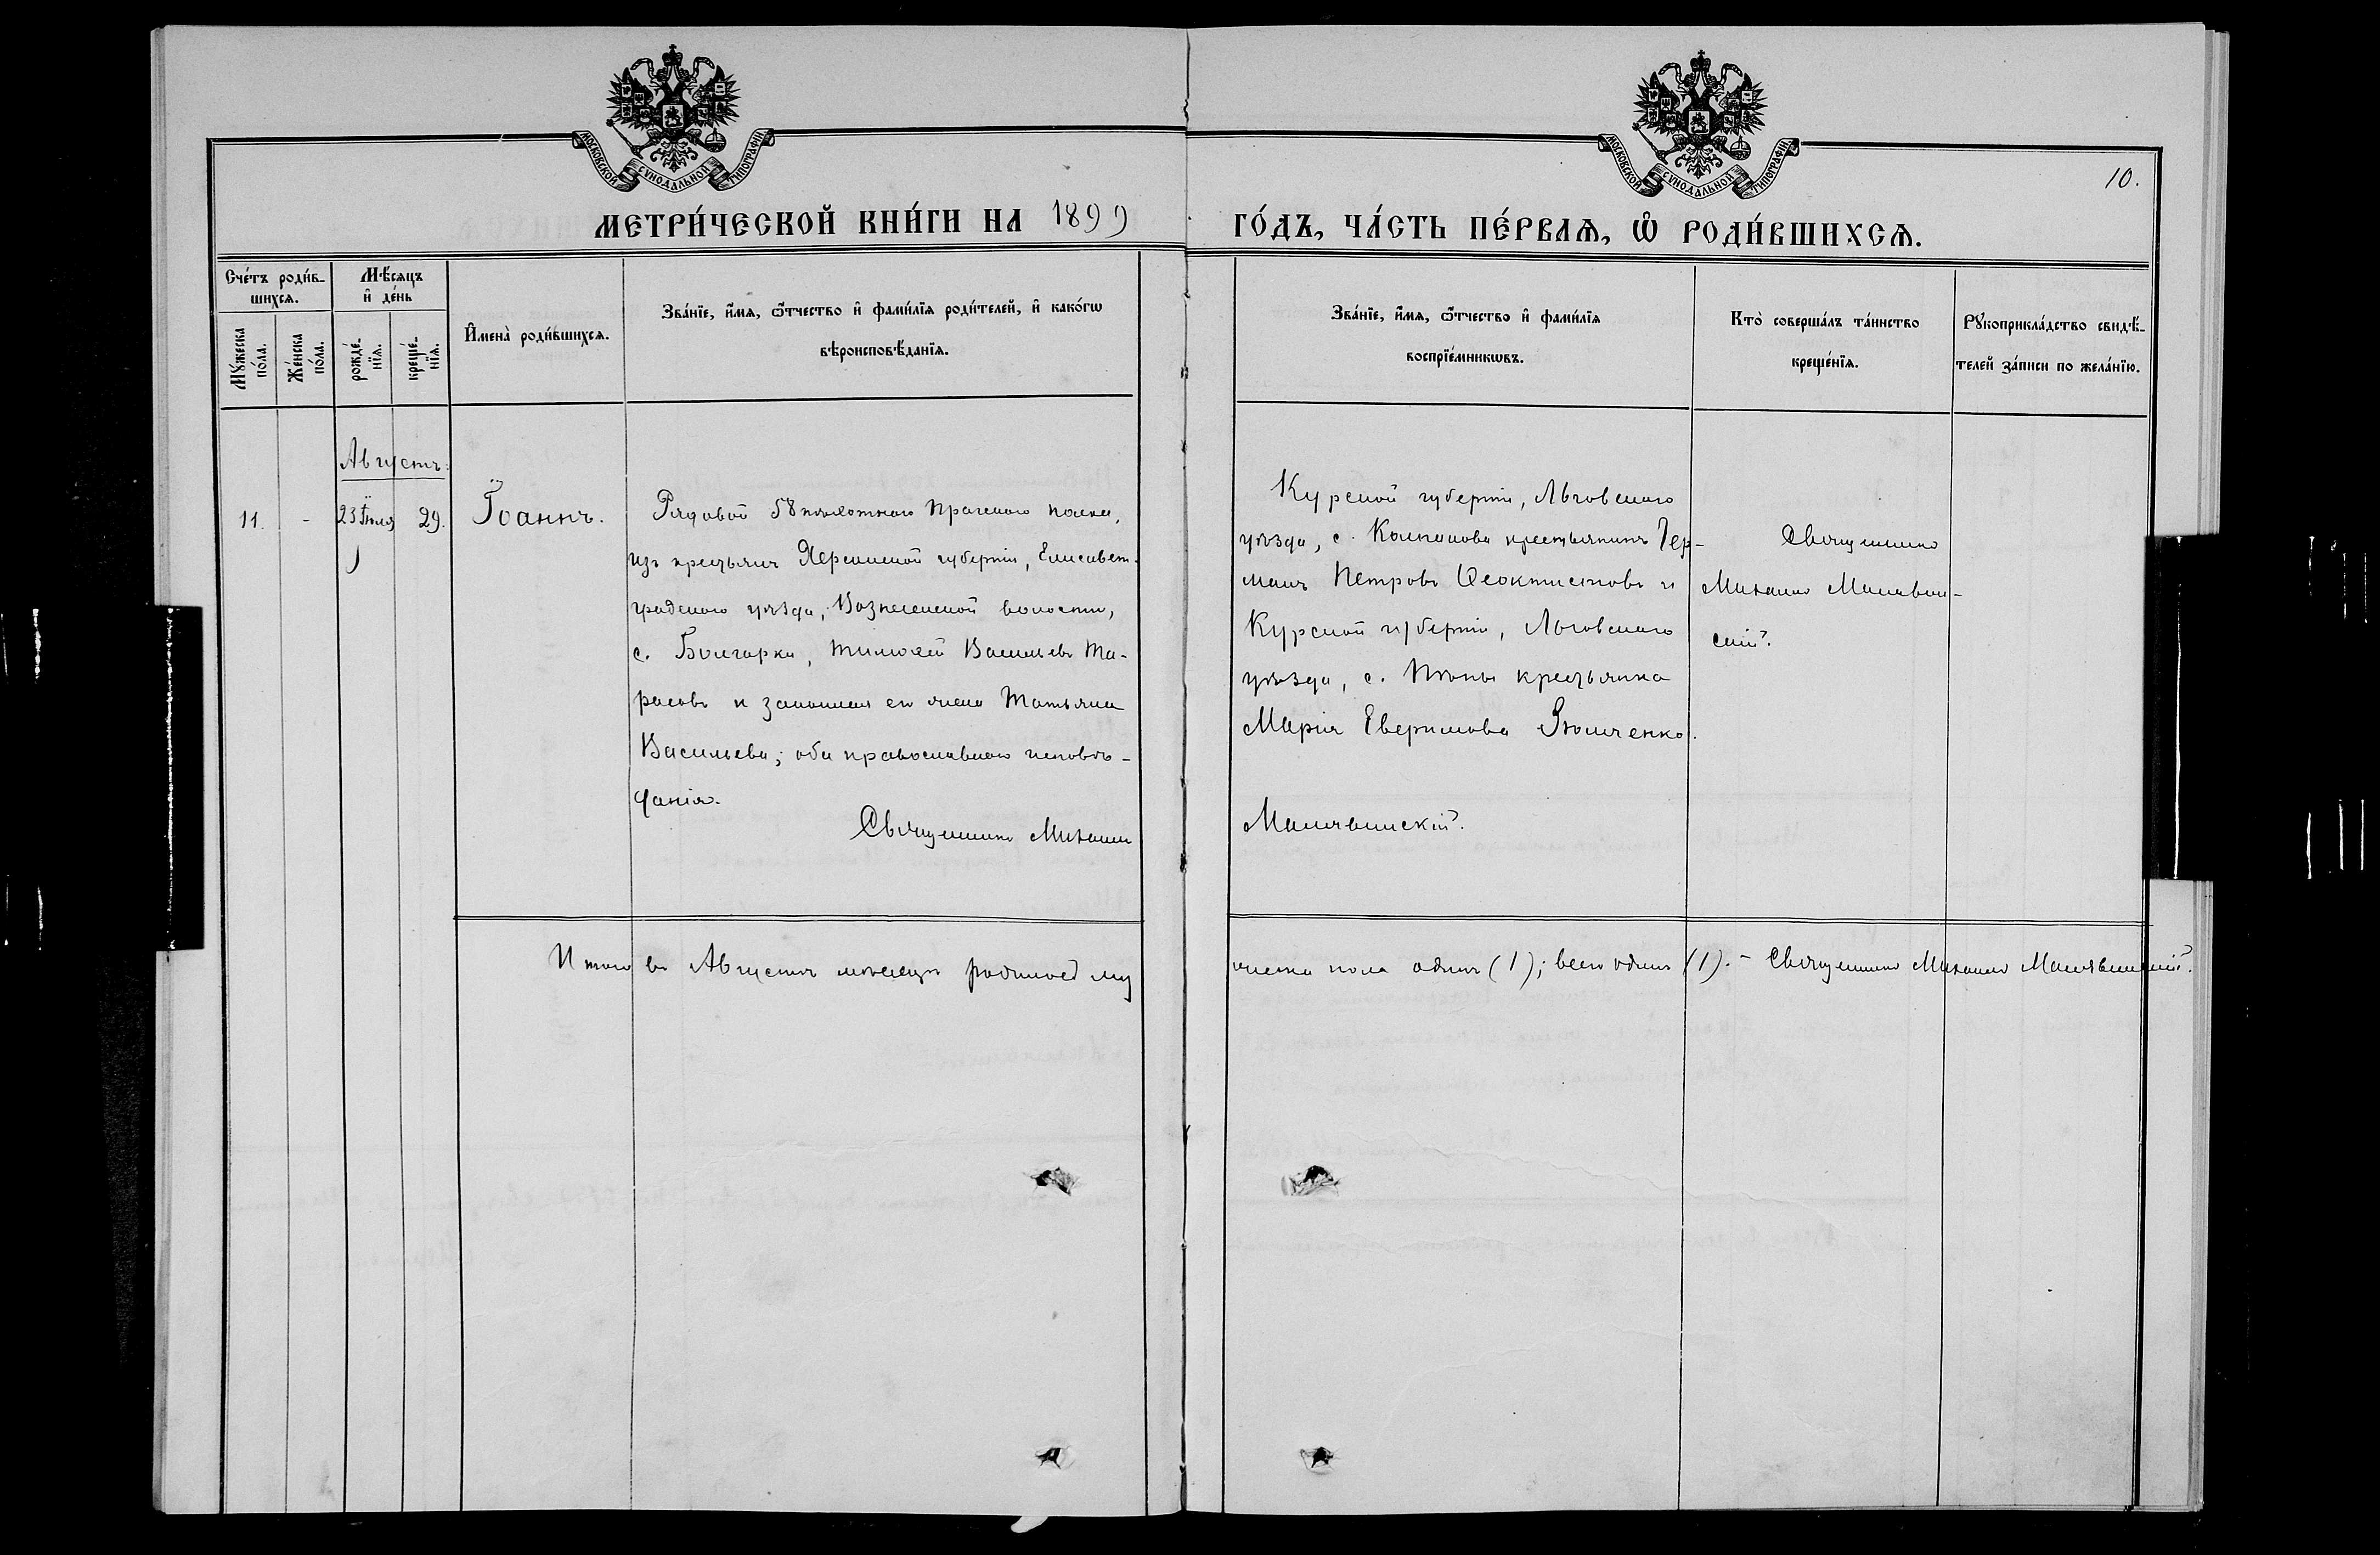 МОСКОВСКОЙ СѴНОДАЛЬНОЙ ТИПОГРАФІИ
МОСКОВСКОЙ СѴНОДАЛЬНОЙ ТИПОГРАФІИ
10.
МЕТРИ́ЧЕСКОЙ КНИ́ГИ НА 1899
ГО́ДЪ, ЧА́СТЬ ПЕ́РВАѦ, Ѡ҆ РОДИ́ВШИХСѦ.
Сче́тъ роди́в-
шихсѧ.
Мѣ́сѧцъ
и҆ де́нь
Мꙋ́жеска
по́ла.
Же́нска
по́ла.
рожде́-
нїѧ.
креще́-
нїѧ.
И҆мена̀ роди́вшихсѧ.
Зва́нїе, и҆́мѧ, ѻ҆́тчество и҆ фами́лїѧ роди́телей, и҆ како́гѡ
вѣроисповѣ́данїѧ.
Зва́нїе, и҆́мѧ, ѻ҆́тчество и҆ фами́лїѧ
воспрїе́мникѡвъ.
Кто̀ соверша́лъ та́инство
креще́нїѧ.
Рꙋкоприкла́дство свидѣ́-
телей за́писи по жела́нїю.
Августъ:
11. - 23 Іюля 29. Іоаннъ.
Рядовой 58 пѣхотнаго Прагскаго полка,
изъ крестьянъ Херсонской губерніи, Елисавет-
градскаго уѣзда, Вознесенской волости,
с. Болгарки, Тимоѳей Васильевъ Та-
расовъ и законная его жена Татьяна
Васильева; оба православнаго исповѣ-
данія.
Священникъ Михаилъ
Курской губерніи, Льговскаго
уѣзда, с. Колпакова крестьянинъ Гер-
манъ Петровъ Ѳеоктистовъ и
Курской губерніи, Льговскаго
уѣзда, с. крестьянка
Марія
Священникъ
Михаилъ
скій.
Итого въ Августѣ мѣсяцѣ родилось му
жеска пола одинъ (1); всего одинъ (1). - Священникъ Михаилъ